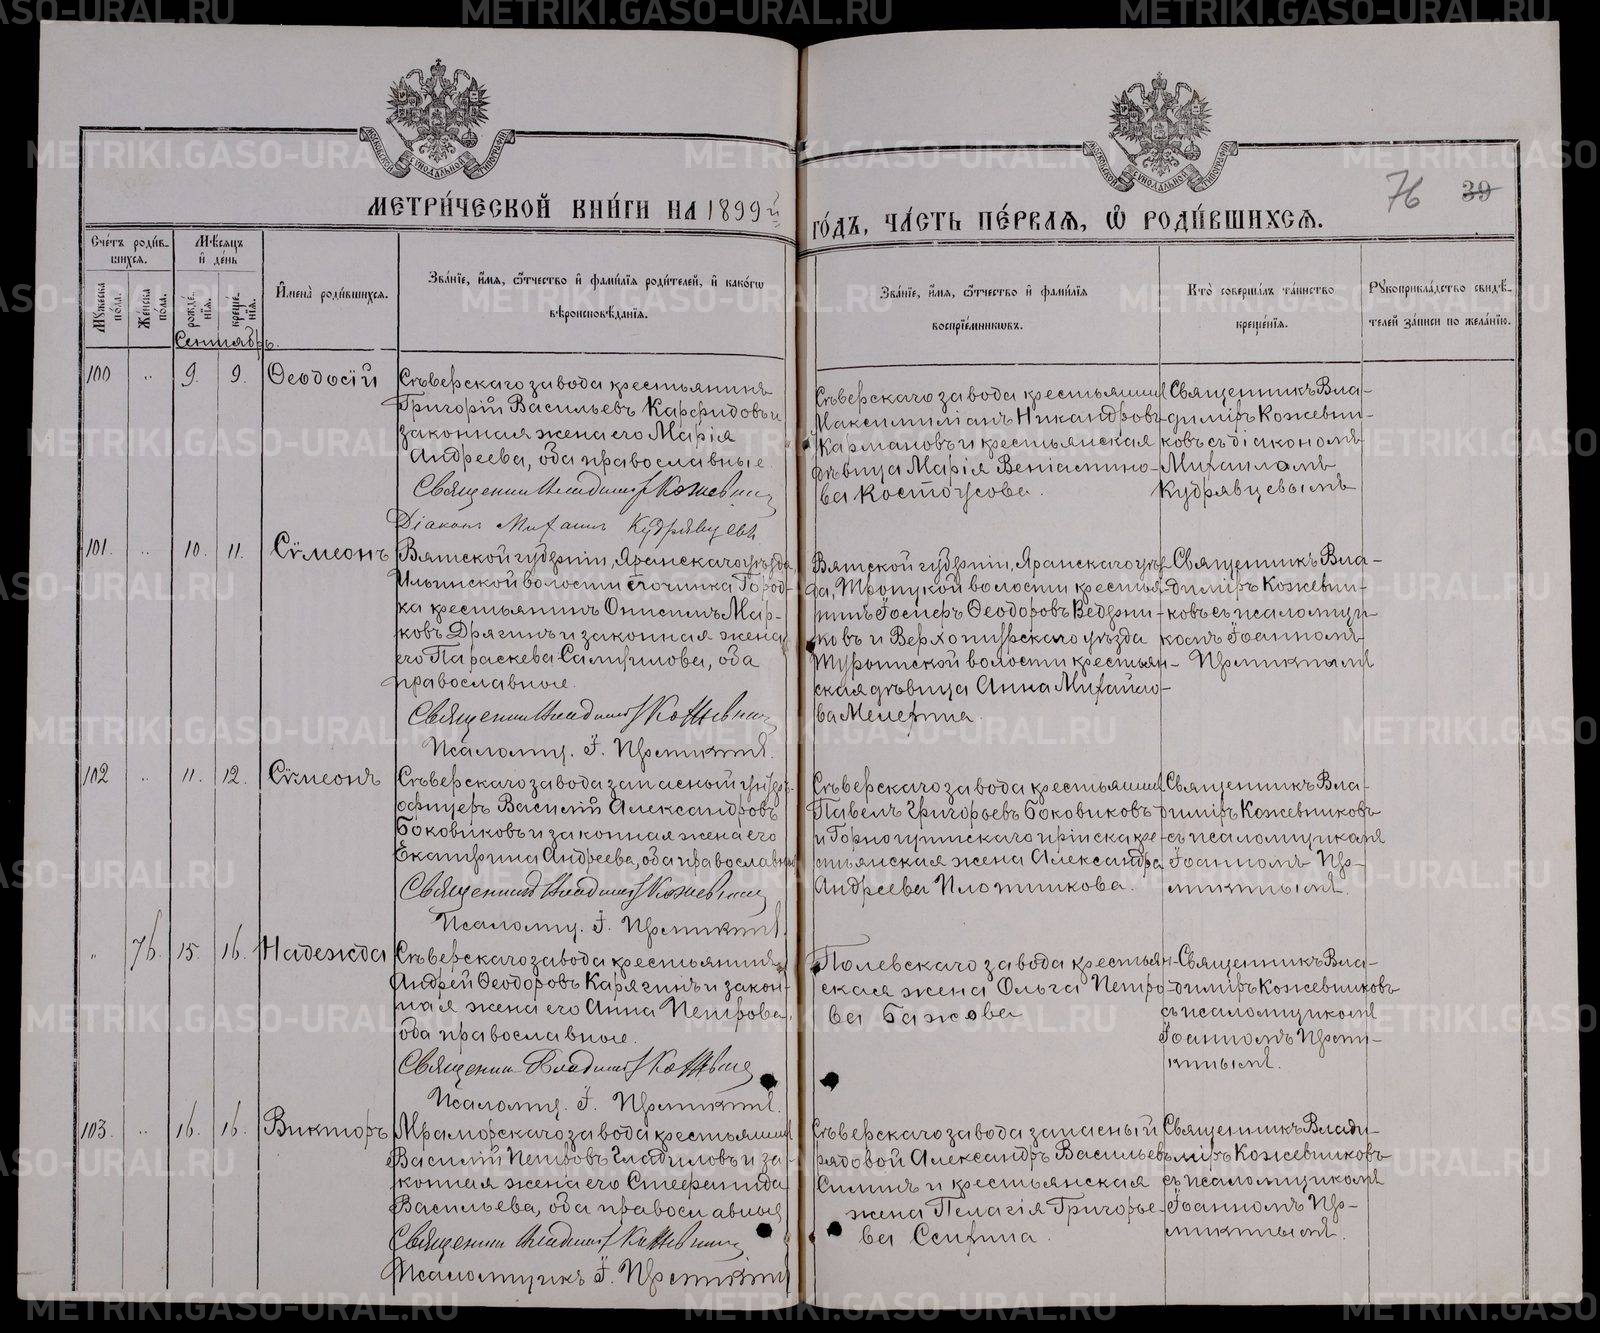 МЕТРИ́ЧЕСКОЙ КНИ́ГИ НА 1899 й
ГО́ДЪ, ЧА́СТЬ ПЕ́РВАЯ, Ѡ҆ РОДИ́ВШИХСЯ.
76 39
Сче́тъ роди́в-
шихся.
Мѣ́сяцъ
и҆ де́нь
Мꙋ́жеска по́ла.
Же́нска по́ла.
рожде́нїя.
креще́нїя.
И҆мена̀ роди́вшихся.
Зва́нїе, и҆́мя, ѻ҆́тчество и҆ фами́лїя роди́телей, и҆ како́гѡ
вѣроисповѣ́данїя.
Зва́нїе, и҆́мя, ѻ҆́тчество и҆ фами́лїя
воспрїе́мникѡвъ.
Кто̀ соверша́лъ та́инство
креще́нїя.
Рꙋкоприкла́дство свидѣ́-
телей за́писи по жела́нїю.
Сентябрь.
100 .. 9. 9. Ѳеодосій
Сѣверскаго завода крестьянинъ
Григорій Васильевъ Карфидовъ и
законная жена его Марія
Андреева, оба православные.
Священникъ Владимір Кожевник
Діаконъ Михаилъ Кудрявцевъ
Сѣверскаго завода крестьянинъ
Максимиліанъ Никандровъ
Кармановъ и крестьянская
дѣвица Марія Веніамино-
ва Костоусова.
Священникъ Вла-
диміръ Кожевни-
ковъ съ діакономъ
Михаиломъ
Кудрявцевымъ
101. .. 10. 11. Сѵмеонъ
Вятской губерніи, Яранскаго уѣзда,
Ильинской волости починка Город-
ка крестьянинъ Онисимъ Мар-
ковъ Дрягинъ и законная жена
его Параскева Самуилова, оба
православные.
Священникъ Владимір Кожевник
Псаломщ. І. Пермикинъ.
Вятской губерніи, Яранскаго уѣз-
да, волости крестья-
нинъ Ѳеодоровъ Ведерни-
ковъ и Верхотурскаго уѣзда
волости крестьян-
ская дѣвица Анна Михайло-
ва Мелехина.
Священникъ Вла-
диміръ Кожевни-
ковъ съ псаломщи-
комъ Іоанномъ
Пермикинымъ
102 .. 11. 12. Сѵмеонъ
Сѣверскаго завода запасный унтеръ-
офицеръ Василій Александровъ
Боковиковъ и законная жена его
Екатерина Андреева, оба православные
Священникъ Владимір Кожевник
Псаломщ. І. Пермикинъ.
Сѣверскаго завода крестьянинъ
Павелъ Григорьевъ Боковиковъ
и Горнощитскаго пріиска кре-
стьянская жена Александра
Андреева Плотникова.
Священникъ Вла-
диміръ Кожевниковъ
съ псаломщикомъ
Іоанномъ Пер-
микинымъ.
.. 76. 15. 16. Надежда
Сѣверскаго завода крестьянинъ
Андрей Ѳеодоровъ Карягинъ и закон-
ная жена его Анна Петрова,
оба православные.
Священник Владимір Кожевник
Псаломщ. І. Пермикинъ.
Полевскаго завода крестьян-
ская жена Ольга Петро-
ва Бажова
Священникъ Вла-
диміръ Кожевниковъ
съ псаломщикомъ
Іоанномъ Перми-
кинымъ.
103. .. 16. 16. Викторъ
Мраморскаго завода крестьянинъ
Василій Петровъ Гладиловъ и за-
конная жена его Стефанида
Васильева, оба православные
Священник Владимір Кожевник
Псаломщикъ І. Пермикинъ
Сѣверскаго завода запасный
рядовой Александръ Васильевъ
Силинъ и крестьянская
жена Пелагія Григорье-
ва
Священникъ Влади-
міръ Кожевниковъ
съ псаломщикомъ
Іоанномъ Пер-
микинымъ.
METRIKI.GASO-URAL.RU